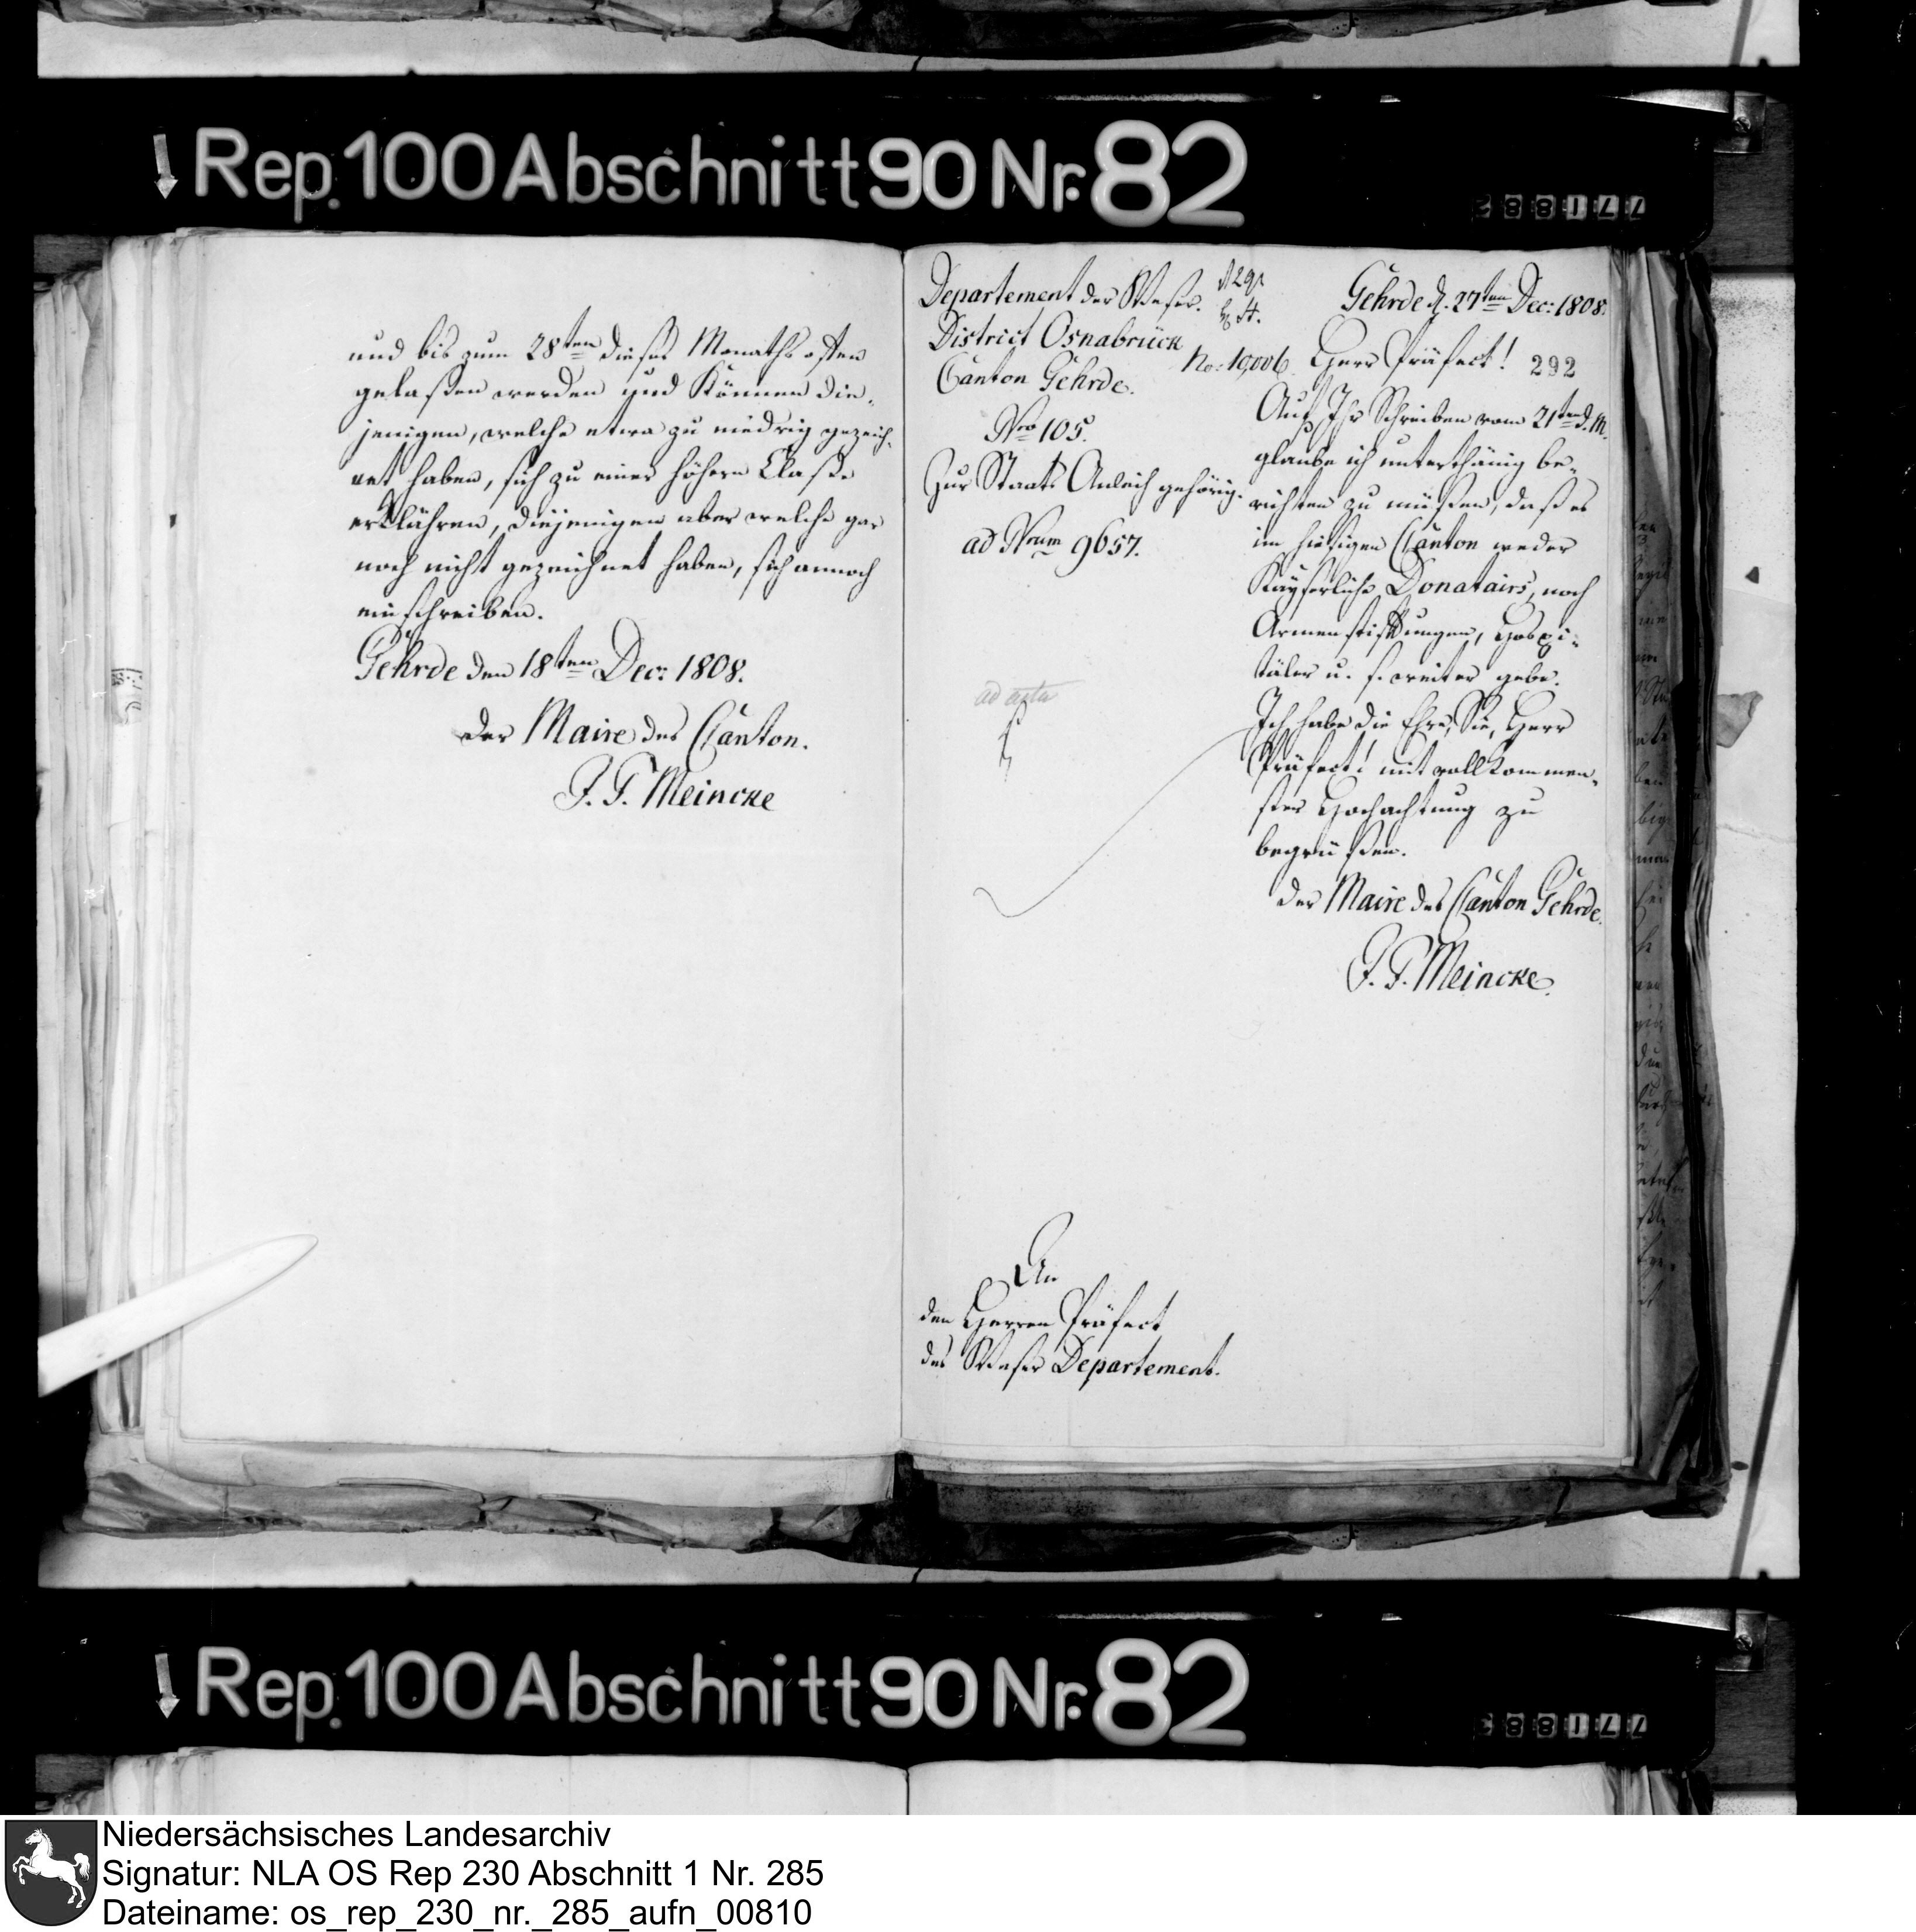 Rep. 100 Abschnitt 90 Nr. 82
771882
und bis zum 28ten dieses Monaths offen
gelaßen werden und Können die-
jenigen, welche etwa zu niedrig gezeich-
net haben, sich zu einer höhern Claße
erklähren, diejenigen aber welche gar
noch nicht gezeichnet haben, sich annoch
einschreiben.
Gehrde den 18ten Dec: 1808.
Der Maire des Canton.
J. F. Meincke
Departement der Weser.
District Osnabrück
Canton Gehrde.
Nro 105.
Zur Staats Anleih gehörig.
ad Nrum 9657.
No: 10,006
ad acta
Gehrde d. 27ten Dec: 1808.
Herr Präfect!
292
Auf Ihr Schreiben vom 21ten d. M.
glaube ich unterthänig be-
richten zu müßen, daß es
im hiesigen Canton weder
Kayserliche Donatairs, noch
Armenstiftungen, Hospi-
täler u. s. weiter gebe.
Ich habe die Ehre, Sie, Herr
Präfect! mit vollkommen-
ster Hochachtung zu
begrüßen.
Der Maire des Canton Gehrde.
J. F. Meincke.
An
den Herren Präfect
des Weser Departement.
Rep. 100 Abschnitt 90 Nr. 82
Niedersächsisches Landesarchiv
Signatur: NLA OS Rep 230 Abschnitt 1 Nr. 285
Dateiname: os_rep_230_nr._285_aufn_00810